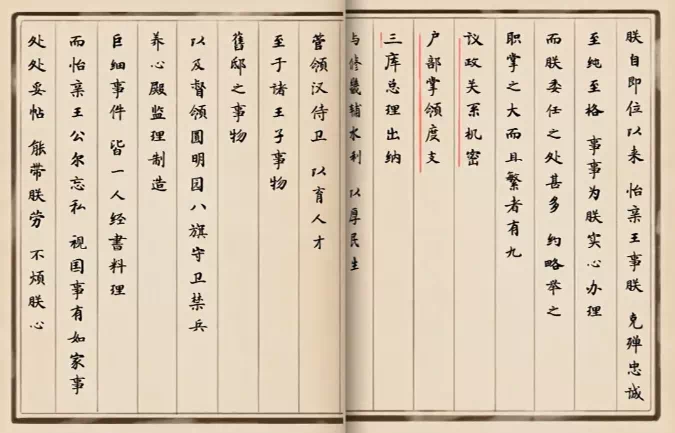 朕自即位以来 怡亲王事朕 克殚忠誠
至纯至格 事事为朕实心办理
而朕委任之处甚多 约略举之
职掌之大而且繁者有九
议政关系机密
户部掌领度支
三库总理出纳
与修畿辅水利 以厚民生
管领汉侍卫 以育人才
至于诸王子事物
舊邸之事物
以及督领圆明园八旗守卫禁兵
养心殿监理制造
巨细事件 皆一人经書料理
而怡亲王公尔忘私 视国事有如家事
处处妥帖 能带朕劳 不烦朕心